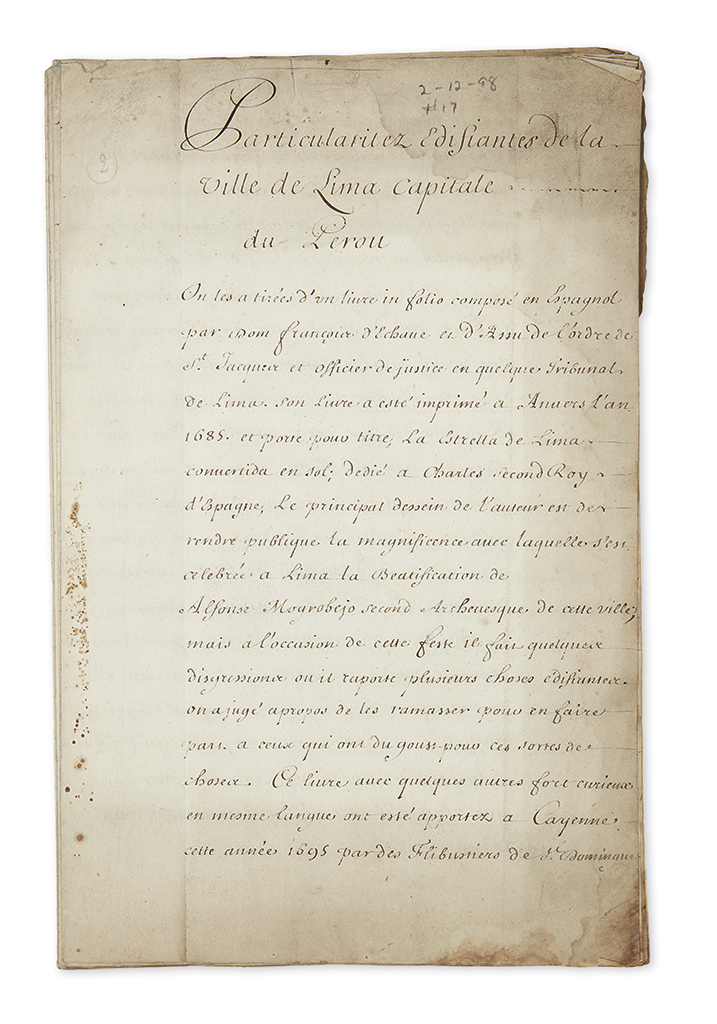 2-12-98
#17
2
Particularitez Edifiantes de la
ville de Lima Capitale
du Perou
On les a tirées d'vn livre in folio composé en Espagnol
par Dom françois d'Echaue et d'Assu de l'ordre de
St. Jacques et officier de justice en quelque Tribunal
de Lima. son Livre a esté imprimé a Anuers l'an
1685. et porte pour titre, La Estrella de Lima
convertida en sol; dedié a Charles second Roy
d'Espagne, Le principal dessein de l'auteur est de
rendre publique la magnificence avec laquelle s'est
celebrée a Lima la Beatification de
Alfonse Mogrobejo second Archeuesque de cette ville,
mais a l'occasion de cette feste il fait quelques
disgressions ou il raporte plusieurs choses edifiantes.
on a jugé apropos de les ramasser pour en faire
part a ceux qui ont du goust pour ces sortes de
choses. Ce livre avec quelques autres fort curieux
en mesme langue ont esté apportez a Cayenne
cette année 1695 par des Flibustiers de St. Domingue